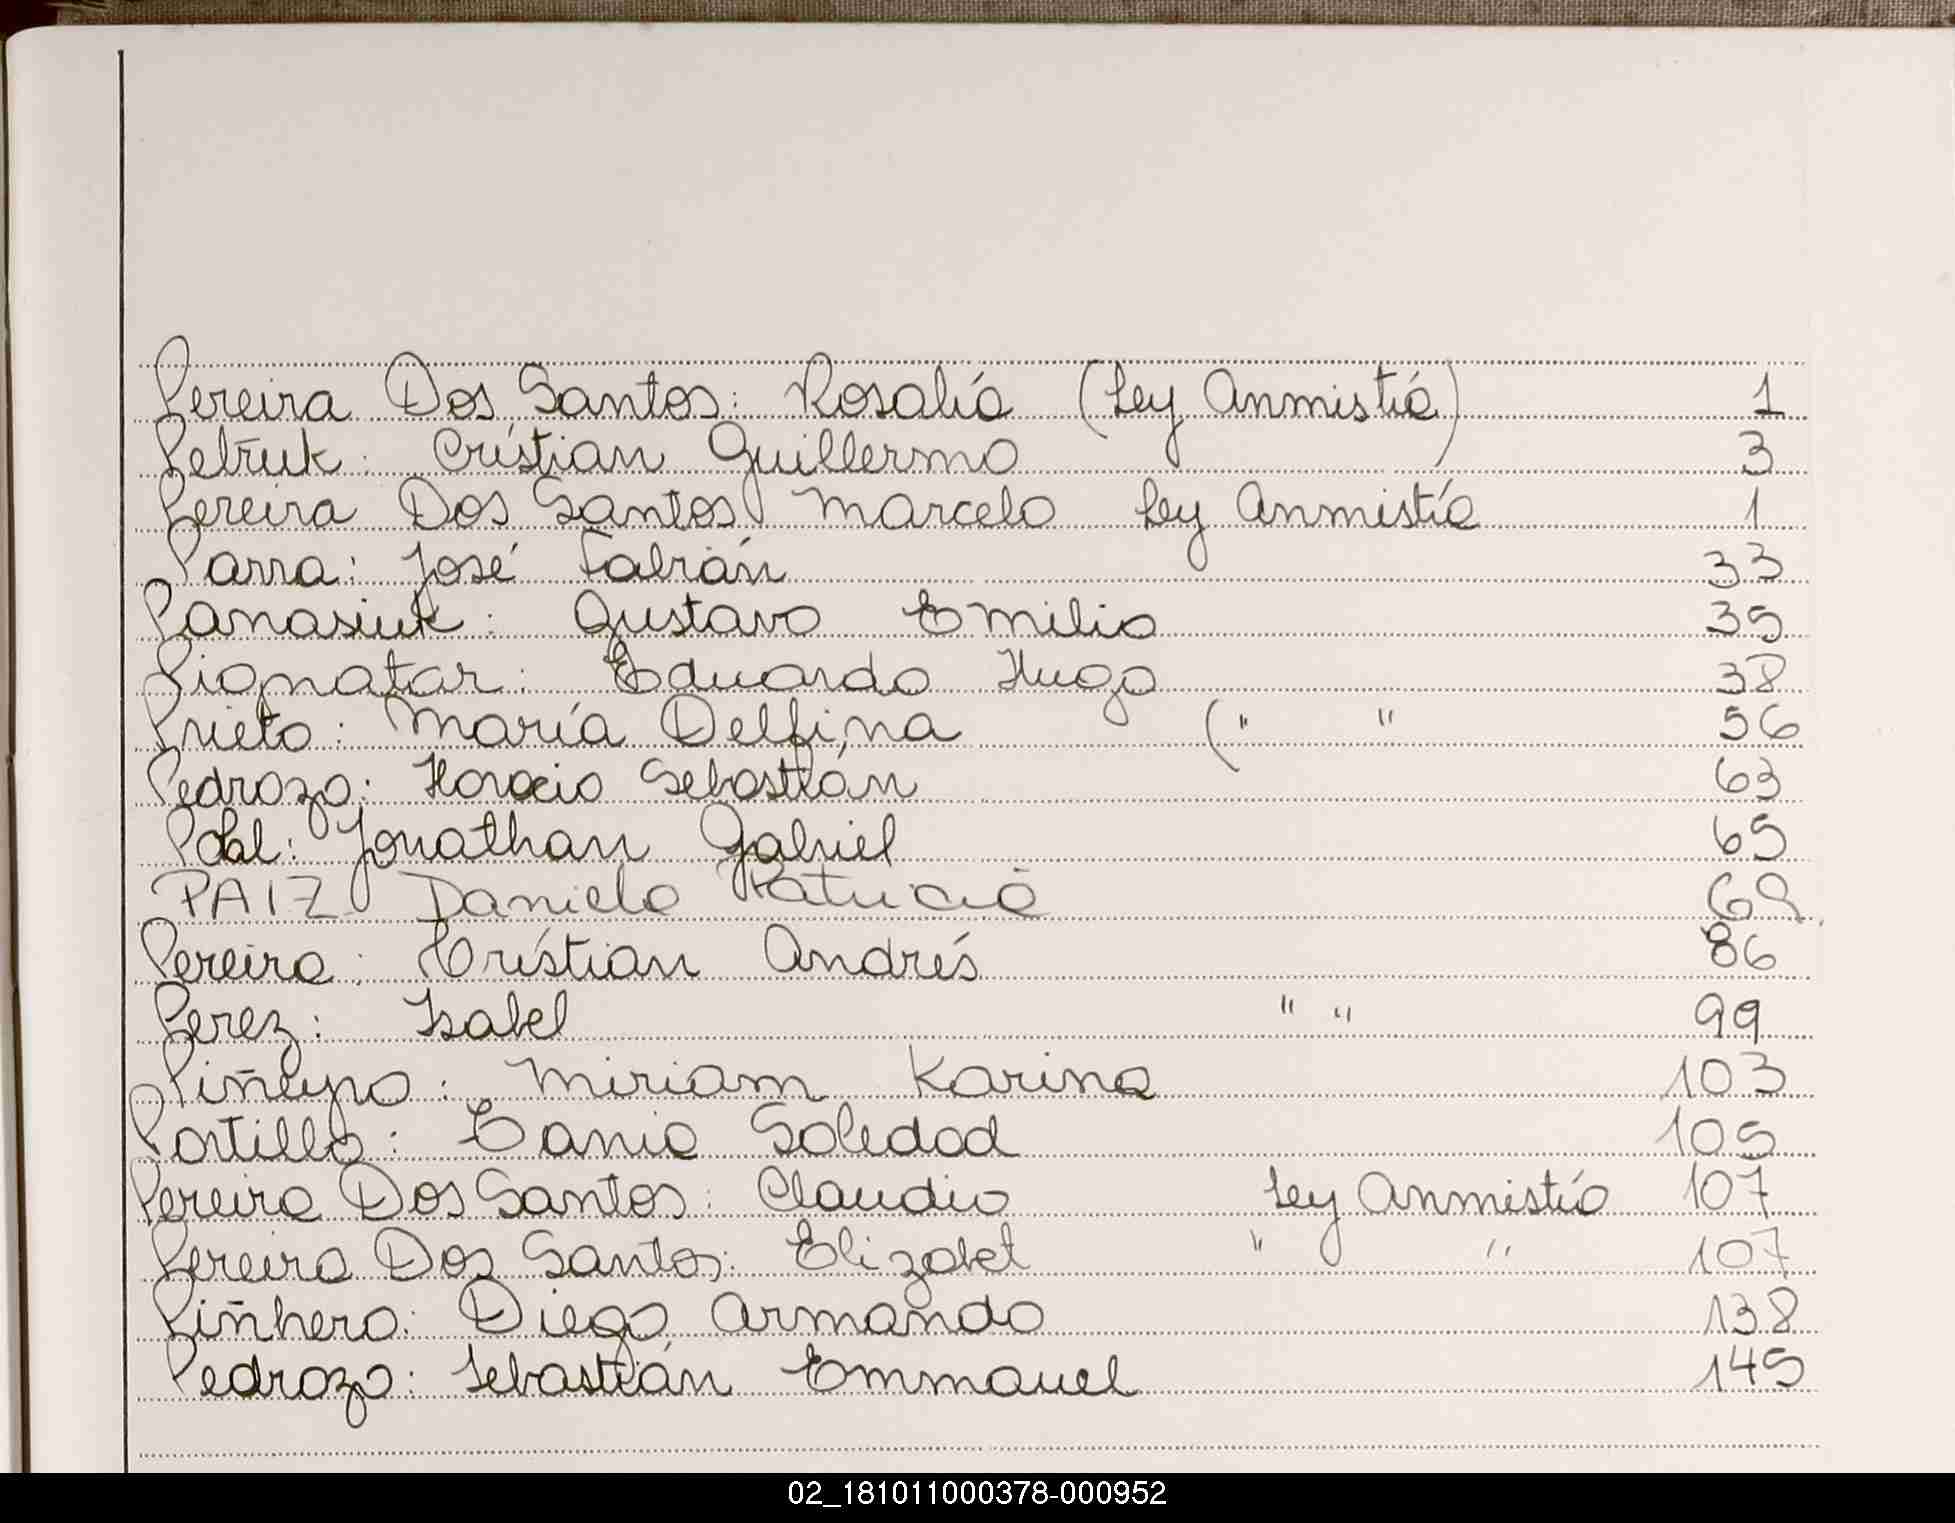 Pereira Dos Santos: Rosalía (Ley Anmistía) 1
Petruk: Cristian Guillermo 3
Pereira Dos Santos Marcelo Ley Anmistía 1
Parra: José Fabián 33
Panasiuk: Gustavo Emilio 35
Pignatar: Eduardo Hugo 38
Prieto: María Delfina (" " 56
Pedrozo: Horacio Sebastián 63
Jonathan Gabriel 65
PAIZ Daniela Patricia 69
Pereira: Cristian Andrés 86
Perez: Isabel " " 99
Piñeyro: Miriam Karina 103
Portillo: Tania Soledad 105
Pereira Dos Santos: Claudio Ley Anmistía 107
Pereira Dos Santos: Elizabet " " 107
Piñhero: Diego Armando 138
Pedrozo: Sebastián Emmanuel 145
02_181011000378-000952